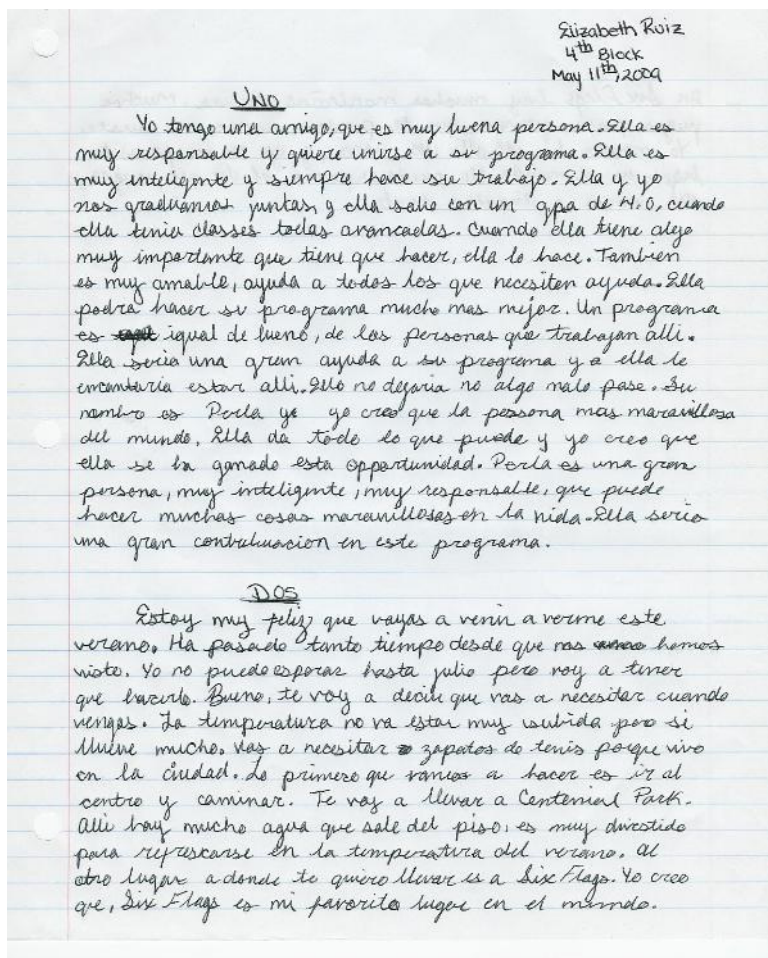 Elizabeth Ruiz
4th Block
May 11th, 2009
UNO
Yo tengo una amigo, que es muy buena persona. Ella es
muy responsable y quiere unirse a su programa. Ella es
muy inteligente y siempre hace su trabajo. Ella y yo
nos graduamos juntas, y ella salio con un gpa de 4.0, cuando
ella tenia classes todas avancadas. Cuando ella tiene algo
muy importante que tiene que hacer, ella lo hace. Tambien
es muy amable, ayuda a todos los que necesiten ayuda. Ella
podra hacer su programa mucho mas mejor. Un programa
es igual de bueno, de las personas que trabajan alli.
Ella seria una gran ayuda a su programa y a ella le
encantaria estar alli. Ella no dejaria no algo malo pase. Su
nombre es Perla y yo creo que la persona mas maravillosa
del mundo. Ella da todo lo que puede y yo creo que
ella se ha ganado esta opportunidad. Perla es una gran
persona, muy inteligente, muy responsable, que puede
hacer muchas cosas maravillosas en la vida. Ella seria
una gran contribuacion en este programa.
DOS
Estoy muy feliz que vayas a venir a verme este
verano. Ha pasado tanto tiempo desde que nos hemos
visto. Yo no puedo esporar hasta julio pero voy a tener
que hacerlo. Bueno, te voy a decir que vas a necesitar cuando
vengas. La temperatura no va estar muy subida pero si
llueve mucho. Vas a necesitar zapatos de tenis porque vivo
en la ciudad. Lo primero que vamos a hacer es ir al
centro y caminar. Te voy a llevar a Centenial Park.
Alli hay mucho agua que sale del piso, es muy divertido
para refrescarse en la temperatura del verano. Al
otro lugar a donde te quiero llevar es a Six Flags. Yo creo
que, Six Flags es mi favorito lugar en el mundo.